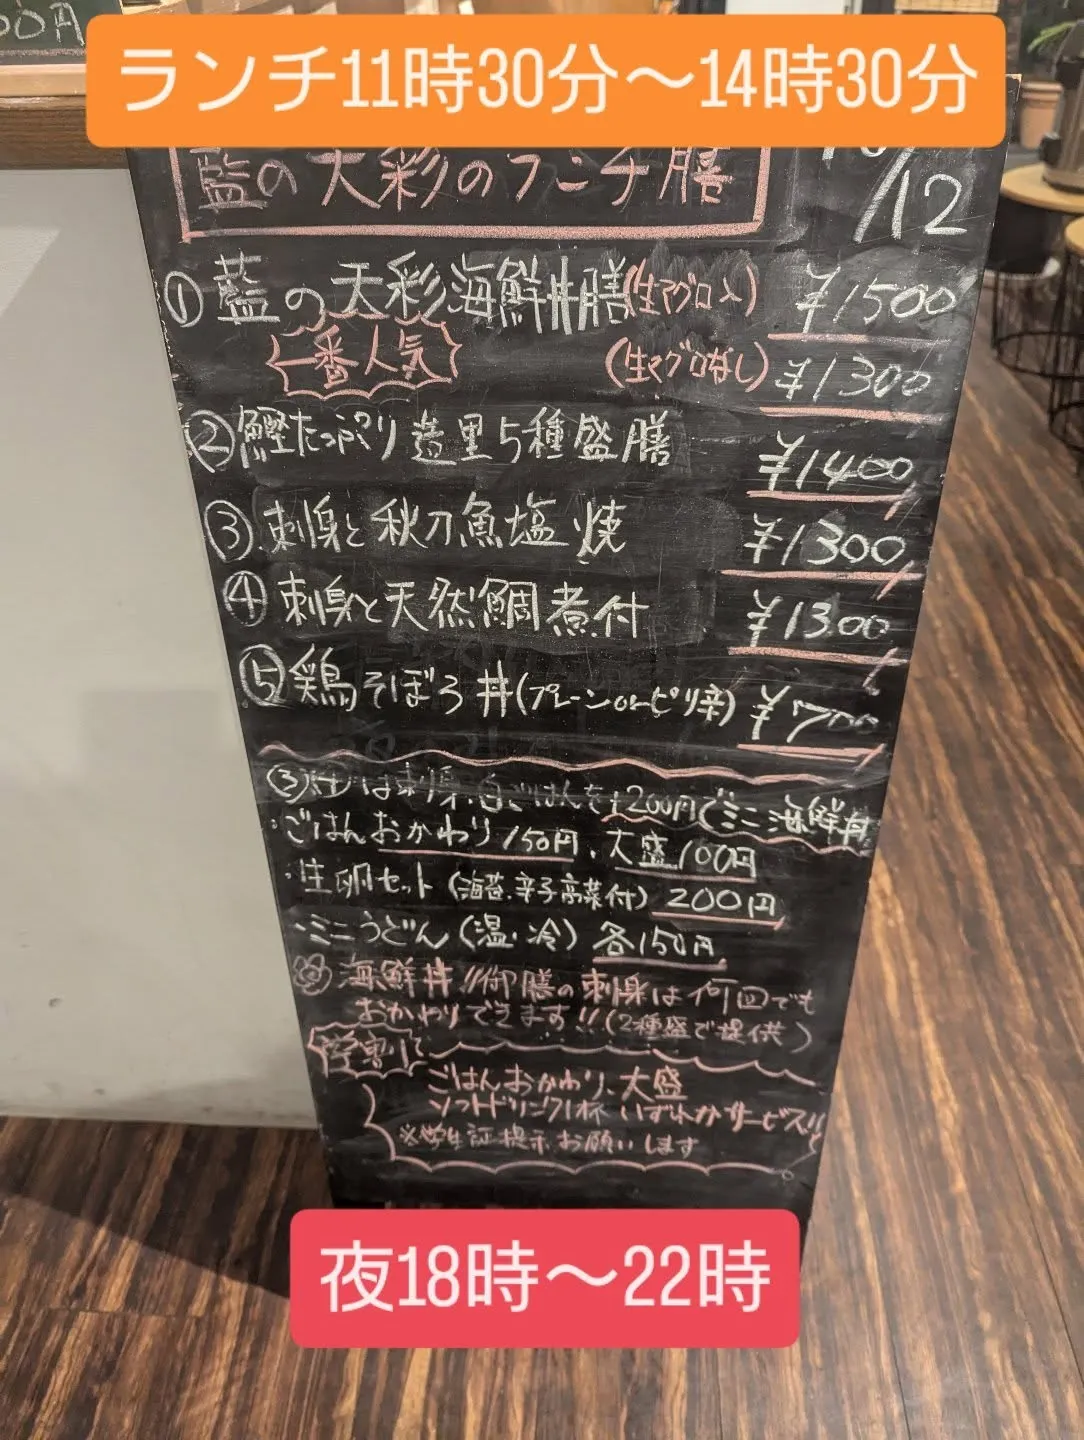 00円
ランチ11時30分〜14時30分
藍の天彩のランチ膳
10/12
① 藍の天彩海鮮丼膳(生マグロ入) ¥1500
一番人気 (生マグロなし) ¥1300
② 鰹たっぷり造里5種盛膳 ¥1400
③ 刺身と秋刀魚塩焼 ¥1300
④ 刺身と天然鯛煮付 ¥1300
⑤ 鶏そぼろ丼(プレーンorピリ辛) ¥700
は刺身、白ごはんを+200円でミニ海鮮丼
・ごはんおかわり150円、大盛100円
・生卵セット(海苔、辛子高菜付)200円
・ミニうどん(温・冷)各150円
海鮮丼、御膳の刺身は何回でも
おかわりできます!!(2種盛で提供)
学割
ごはんおかわり、大盛
ソフトドリンク1杯 いずれかサービス!!
※学生証提示お願いします
夜18時〜22時